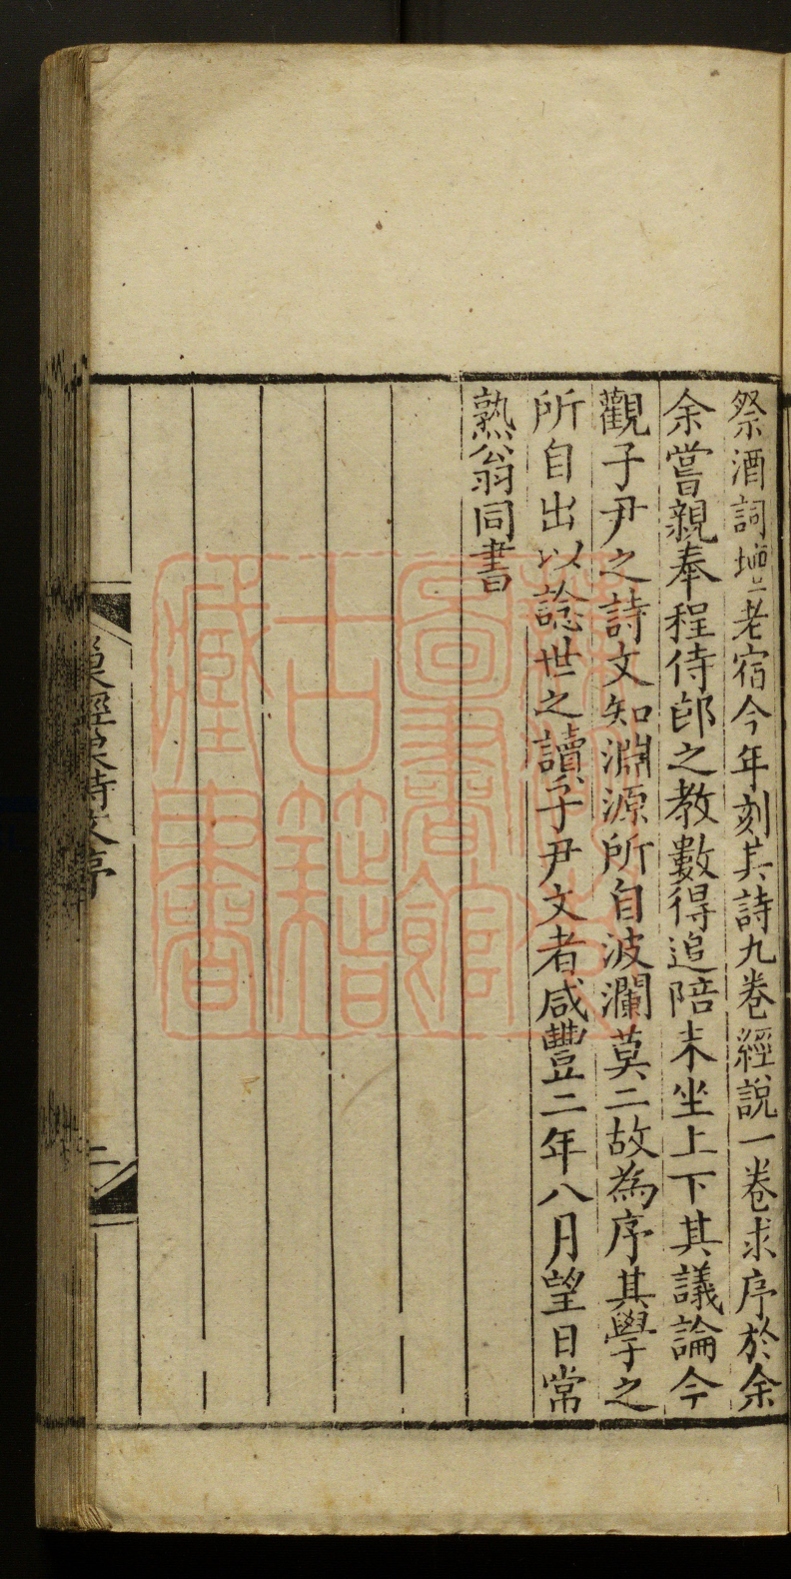 祭酒詞壇老宿今年刻其詩九卷經說一卷求序於余
余嘗親奉程侍郎之教數得追陪末坐上下其議論今
觀子尹之詩文知淵源所自波瀾莫二故為序其學之
所自出以諗世之讀子尹文者咸豐二年八月望日常
熟翁同書
巢經巢詩文序
二
圖書館
古籍
藏書